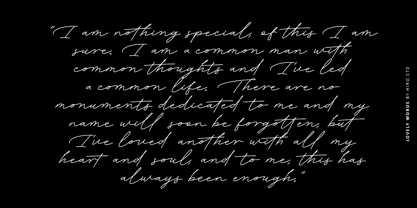 "I am nothing special, of this I am
sure. I am a common man with
common thoughts and I've led
a common life. There are no
monuments dedicated to me and my
name will soon be forgotten, but
I've loved another with all my
heart and soul, and to me, this has
always been enough."
LOVELY WORDS BY HIRO.STD